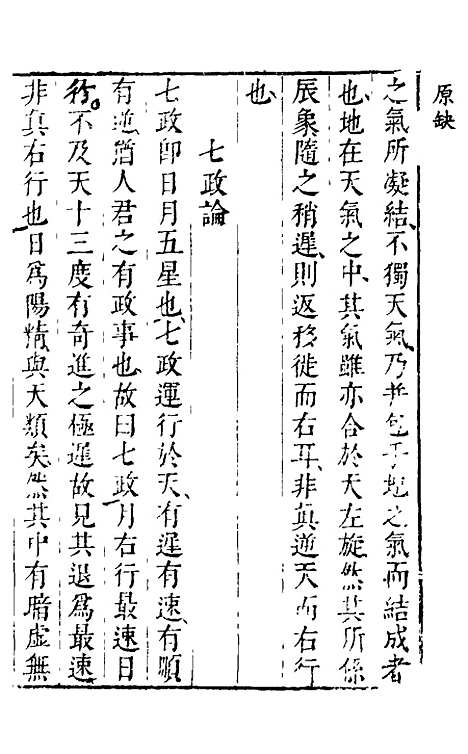 原缺
之氣所凝結、不獨天氣乃并包乎地之氣而結成者
也、地在天氣之中、其氣雖亦合於天左旋然其所係
辰象隨之稍遲、則返移徙而右耳、非眞逆天而右行
也、
七政論
七政卽日月五星也、七政運行於天、有遲有速、有順
有逆、猶人君之有政事也、故曰七政、月右行最速日
行不及天十三度有奇進之極遲故見其退爲最速
非眞右行也、日爲陽精、與天類矣、然其中有暗虛無